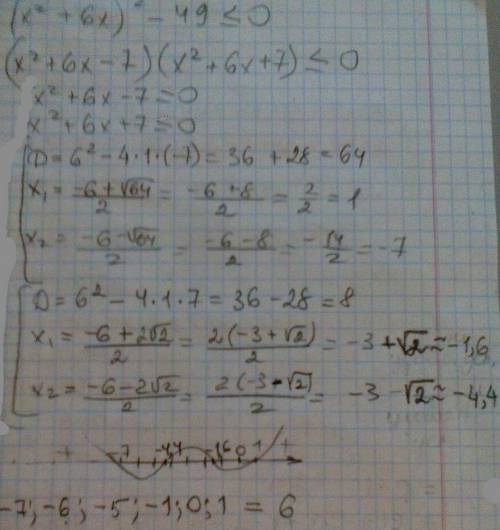 (x² + 6x)² - 49 ≤ 0
(x² + 6x - 7)(x² + 6x + 7) ≤ 0
x² + 6x - 7 = 0
x² + 6x + 7 = 0
D = 6² - 4·1·(-7) = 36 + 28 = 64
x₁ = (-6 + √64)/2 = (-6 + 8)/2 = 2/2 = 1
x₂ = (-6 - √64)/2 = (-6 - 8)/2 = -14/2 = -7
D = 6² - 4·1·7 = 36 - 28 = 8
x₁ = (-6 + 2√2)/2 = 2(-3 + √2)/2 = -3 + √2 ≈ -1,6
x₂ = (-6 - 2√2)/2 = 2(-3 - √2)/2 = -3 - √2 ≈ -4,4
+ -7 -4,4 -1,6 0 1 +
-7; -6; -5; -1; 0; 1 = 6